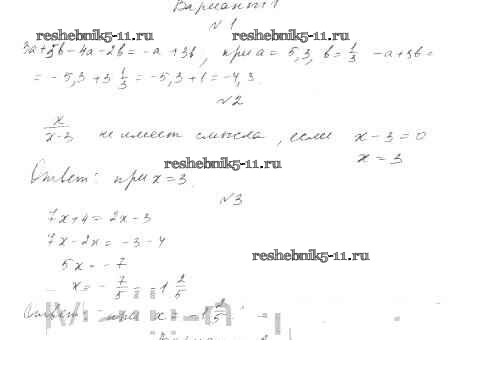 Вариант 1
№ 1
reshebnik5-11.ru reshebnik5-11.ru
3a+5b-4a-2b=-a+3b, при a=5,3, b=1/3 -a+3b=
=-5,3+3 1/3=-5,3+1=-4,3.
№2
x/(x-3) не имеет смысла, если x-3=0
reshebnik5-11.ru x=3
Ответ: при x=3.
№3
7x+4=2x-3
7x-2x=-3-4
reshebnik5-11.ru
5x=-7
x=-7/5=-1 2/5
Ответ: при x=-1 2/5